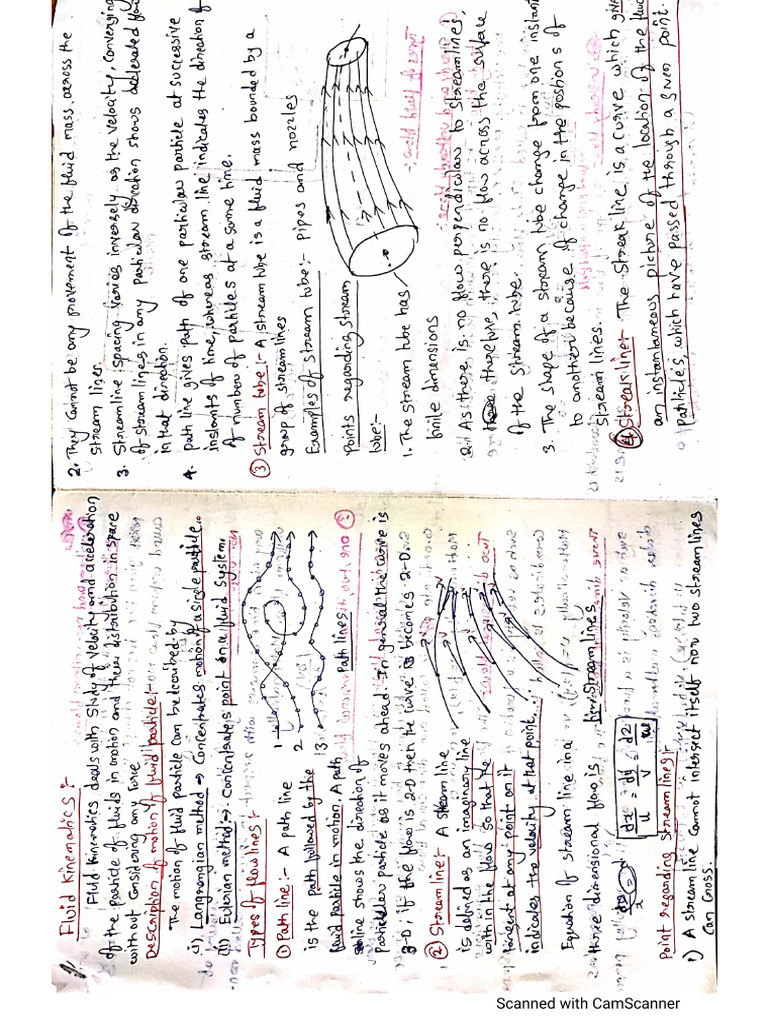 Fluid Kinematics :-
Fluid Kinematics deals with Study of Velocity and acceleration
of the particle of fluids in motion and their distribution in space
without considering any force
Description of motion of fluid particle :-
The motion of fluid particle can be described by
i) Langrangian method → Concentrates motion of a single particle
(ii) Eulerian method → Concentrates point on a fluid system.
Types of flow lines :-
① Path line :- A path line
is the path followed by the
fluid particle in motion. A path
line shows the direction of
Particular particle as it moves ahead. In general the curve is
3-D; if the flow is 2-D then the curve is becomes 2-D.
1
2
3
Path lines
② Stream line :- A stream line
is defined as an imaginary line
with in the flow so that the
tangent at any point on it
indicates the velocity at that point.
Equation of stream line in a
three dimensional flow is
Stream lines
dx/u = dy/v = dz/w
Point regarding stream lines :-
1) A stream line cannot intersect itself nor two stream lines
can cross.
2. They Cannot be any movement of the fluid mass across the
stream lines.
3. Streamline spacing varies inversely as the velocity, converging
of stream lines in any particular direction shows accelerated flow
in that direction.
4. path line gives path of one particular particle at successive
instants of time, whereas stream line indicates the direction of
of number of particles at a same time.
③ Stream tube :- A stream tube is a fluid mass bounded by a
group of streamlines
Examples of stream tube :- Pipes and nozzles
Points regarding stream
tube :-
1. The stream tube has
finite dimensions
2. As there is no flow perpendicular to streamlines,
therefore, there is no flow across the surface
of the stream tube.
3. The shape of a stream tube change from one instant
to another because of change in the positions of
stream lines.
④ Streak line :- The streak line is a curve which gives
an instantaneous picture of the location of the fluid
Particles, which have passed through a given point.
Scanned with CamScanner